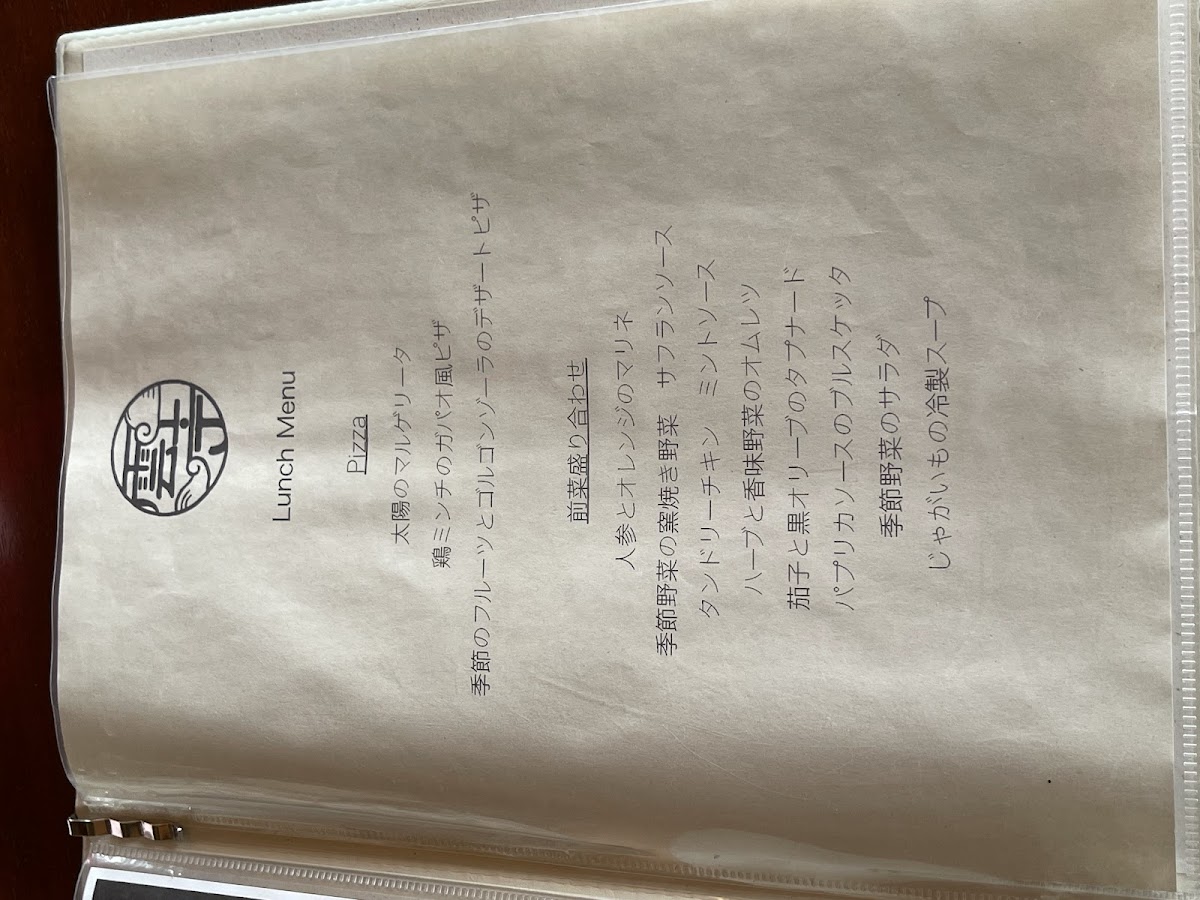 雲寺
Lunch Menu
Pizza
太陽のマルゲリータ
鶏ミンチのガパオ風ピザ
季節のフルーツとゴルゴンゾーラのデザートピザ
前菜盛り合わせ
人参とオレンジのマリネ
季節野菜の窯焼き野菜　サフランソース
タンドリーチキン　ミントソース
ハーブと香味野菜のオムレツ
茄子と黒オリーブのタプナード
パプリカソースのブルスケッタ
季節野菜のサラダ
じゃがいもの冷製スープ